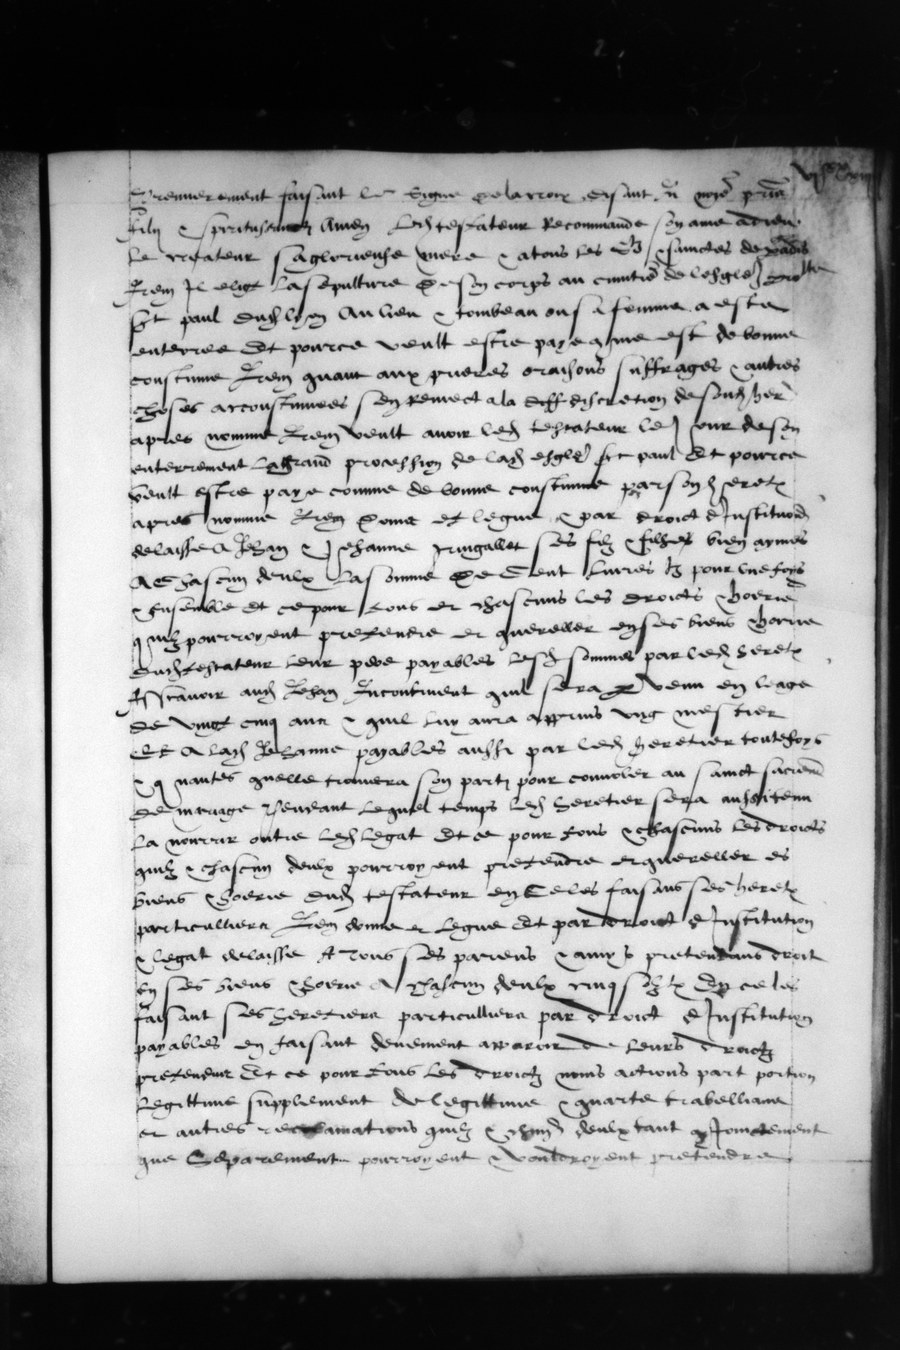 Premierement faisant le signe de la croix disant In noīe pr̄is
filij & spiritussancti Amen Led testateur Recommande son ame a dieu
le createur sa glorieuse mere & a tous les st & sainctes de paradis
Item Il elict la sepulture de son corps au cimitie de lesglē
sct paul dud lyon Au lieu & tombeau ou sa femme a este
enterree Et pource veult estre paye comme est de bonne
coustume Item quant aux prieres oraisons suffrages & autres
choses accoustumees sen remect a la discretion de sond her
apres nomme Item veult avoir led testateur le jour de son
enterrement La grand procession de lad esglē sct paul Et pource
veult estre paye comme de bonne coustume par son heretr
apres nomme Item donne et legue & par droict dInstitution
delaisse A Jehan & Jehanne ses filz & filhes bien aymes
A Chascun deulx La somme de Cent Livres tz pour une foys
& Ensemble Et ce pour tous et chascuns les droicts & hoerie
quilz pourroyent pretendre et quereller en ses biens & hoerie
dud testateur leur pere payables lesd sommes par led heretr
Ascavoir aud Jehan Incontinent quil sera venu en leage
de vingt cinq ans & quil luy aura apprins ung mestier
Et A lad Jehanne payables aussi par led heretier toutefoys
& quantes quelle trouvera son party pour convoler au sainct sacremēt
de mariage Pendant lequel temps led heretier sera aussi tenu
La nourrir oultre led legat Et ce pour tous & chascuns les droicts
quilz & chascun deulx pourroyent pretendre et quereller es
biens & hoerie dud testateur en Ce les faisans ses heretr
particulliers Item donne et legue Et par droict dInstitution
& legat delaisse A Tous ses pariens & amys pretendans droit
en ses biens & hoerie A chascun deulx cinq solz tz En ce les
faisant ses heretiers particulliers par droict dInstitution
payables en faisant deuement apparoir de leurs droictz
pretenduz Et ce pour tous les droictz noms actions part portion
legittime supplement de legittime & quarte trabelliane
et autres reclamations quilz & chūn deulx tant conjoinctement
que Separement pourroyent & vouldroyent pretendre